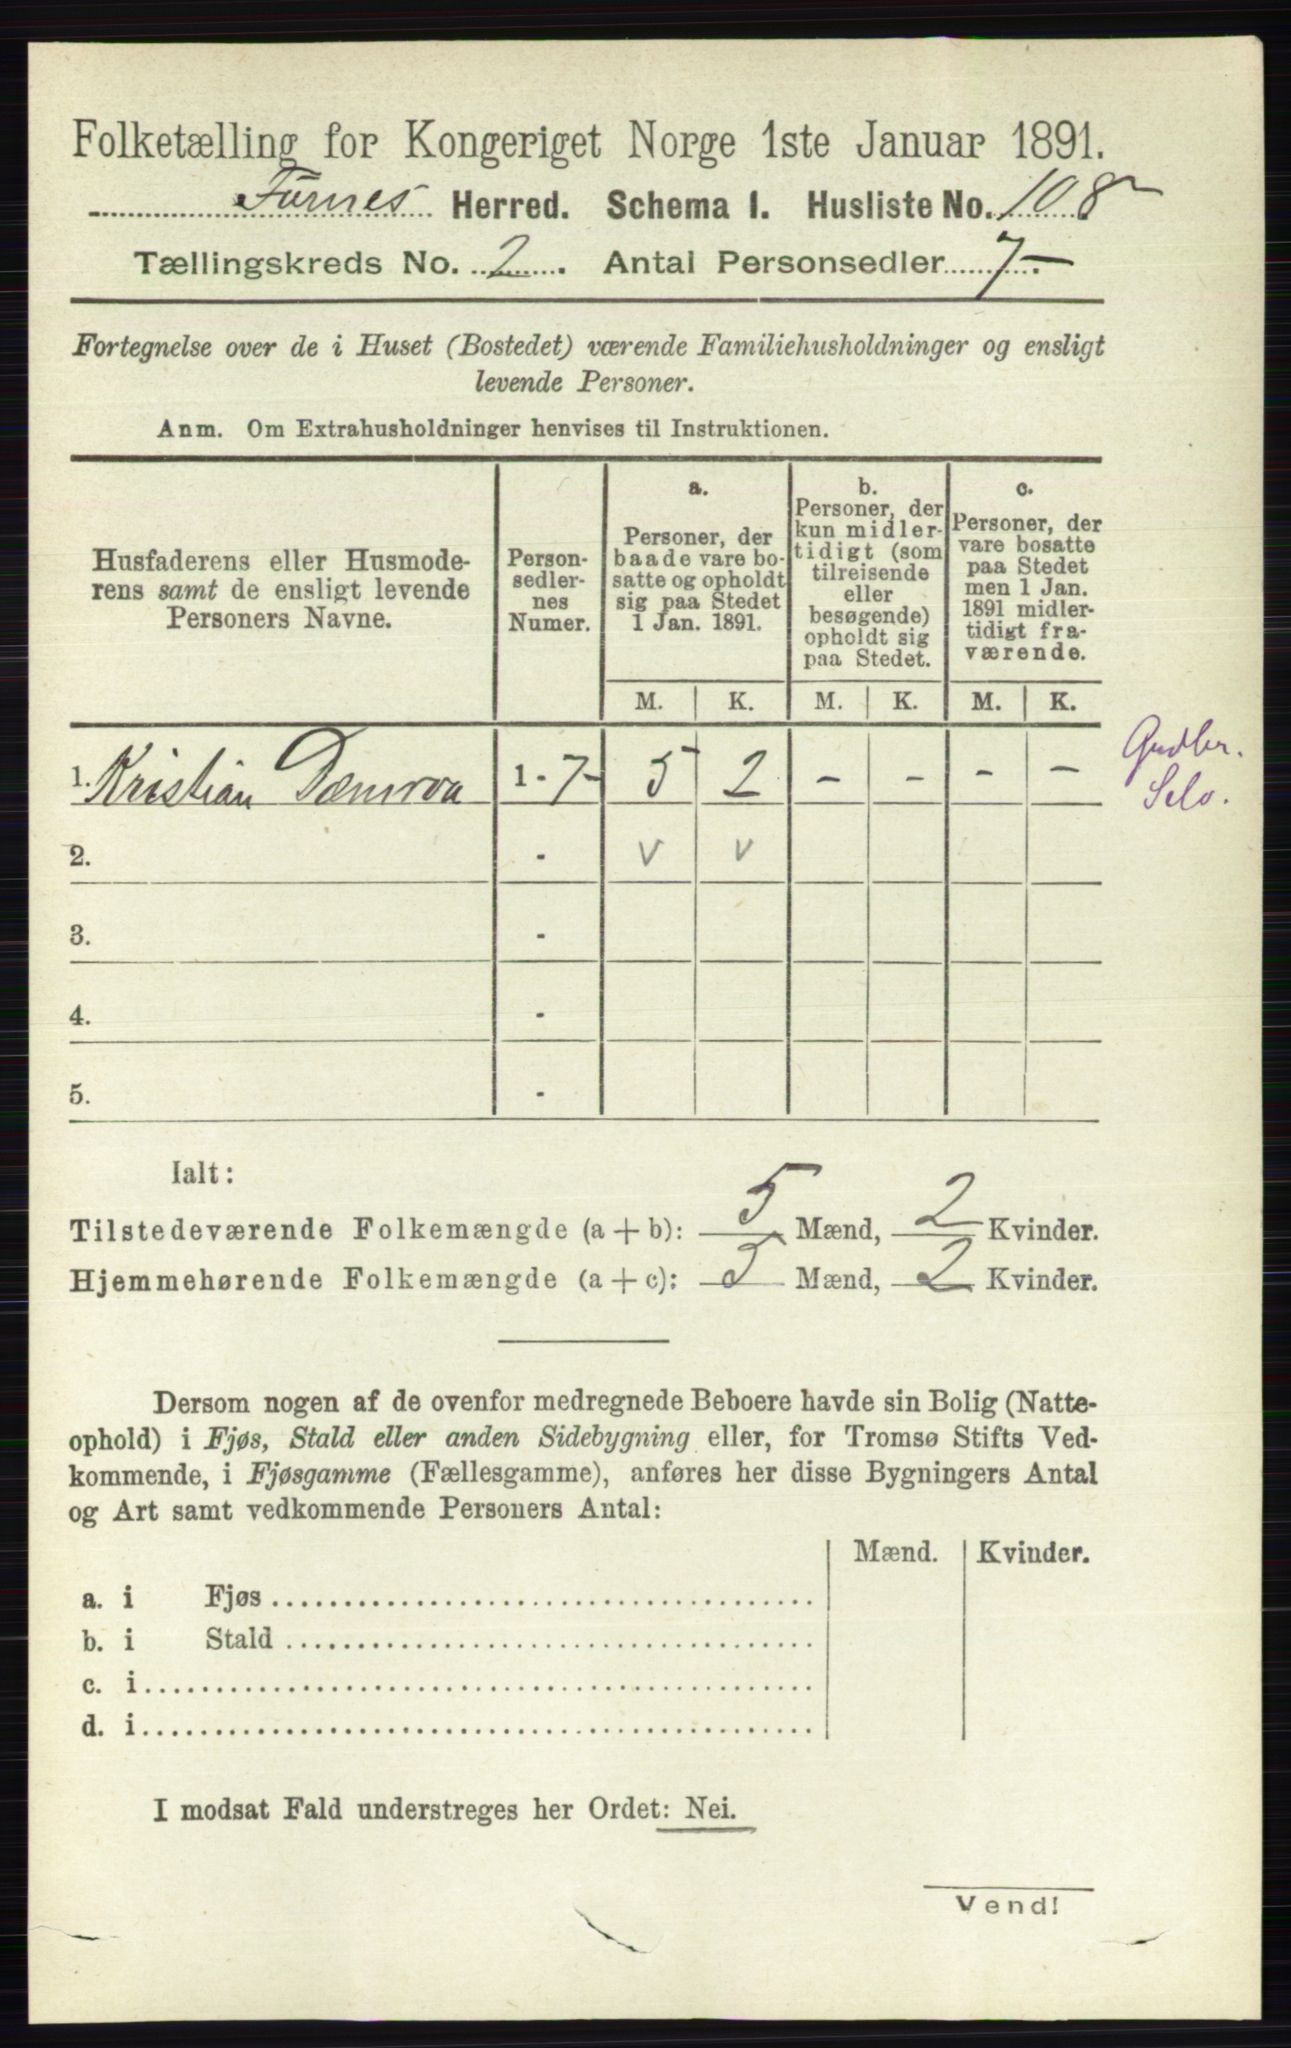 Folketælling for Kongeriget Norge 1ste Januar 1891.
Furnes Herred. Schema I. Husliste No. 108
Tællingskreds No. 2. Antal Personsedler 7-
Fortegnelse over de i Huset (Bostedet) værende Familiehusholdninger og ensligt
levende Personer.
Anm. Om Extrahusholdninger henvises til Instruktionen.
Husfaderens eller Husmode-
rens samt de ensligt levende
Personers Navne.
Person-
sedler-
nes
Numer.
a.
Personer, der
baade vare bo-
satte og opholdt
sig paa Stedet
1 Jan. 1891.
b.
Personer, der
kun midler-
tidigt (som
tilreisende
eller
besøgende)
opholdt sig
paa Stedet.
c.
Personer, der
vare bosatte
paa Stedet
men 1 Jan.
1891 midler-
tidigt fra-
værende.
M. K. M. K. M. K.
1. Kristian 1 - 7- 5 2 - - - -
Selv.
2. - v v
3. -
4. -
5. -
Ialt:
Tilstedeværende Folkemængde (a + b): 5 Mænd, 2 Kvinder.
Hjemmehørende Folkemængde (a + c): 5 Mænd, 2 Kvinder.
Dersom nogen af de ovenfor medregnede Beboere havde sin Bolig (Natte-
ophold) i Fjøs, Stald eller anden Sidebygning eller, for Tromsø Stifts Ved-
kommende, i Fjøsgamme (Fællesgamme), anføres her disse Bygningers Antal
og Art samt vedkommende Personers Antal:
Mænd. Kvinder.
a. i Fjøs
b. i Stald
c. i
d. i
I modsat Fald understreges her Ordet: Nei.
Vend!